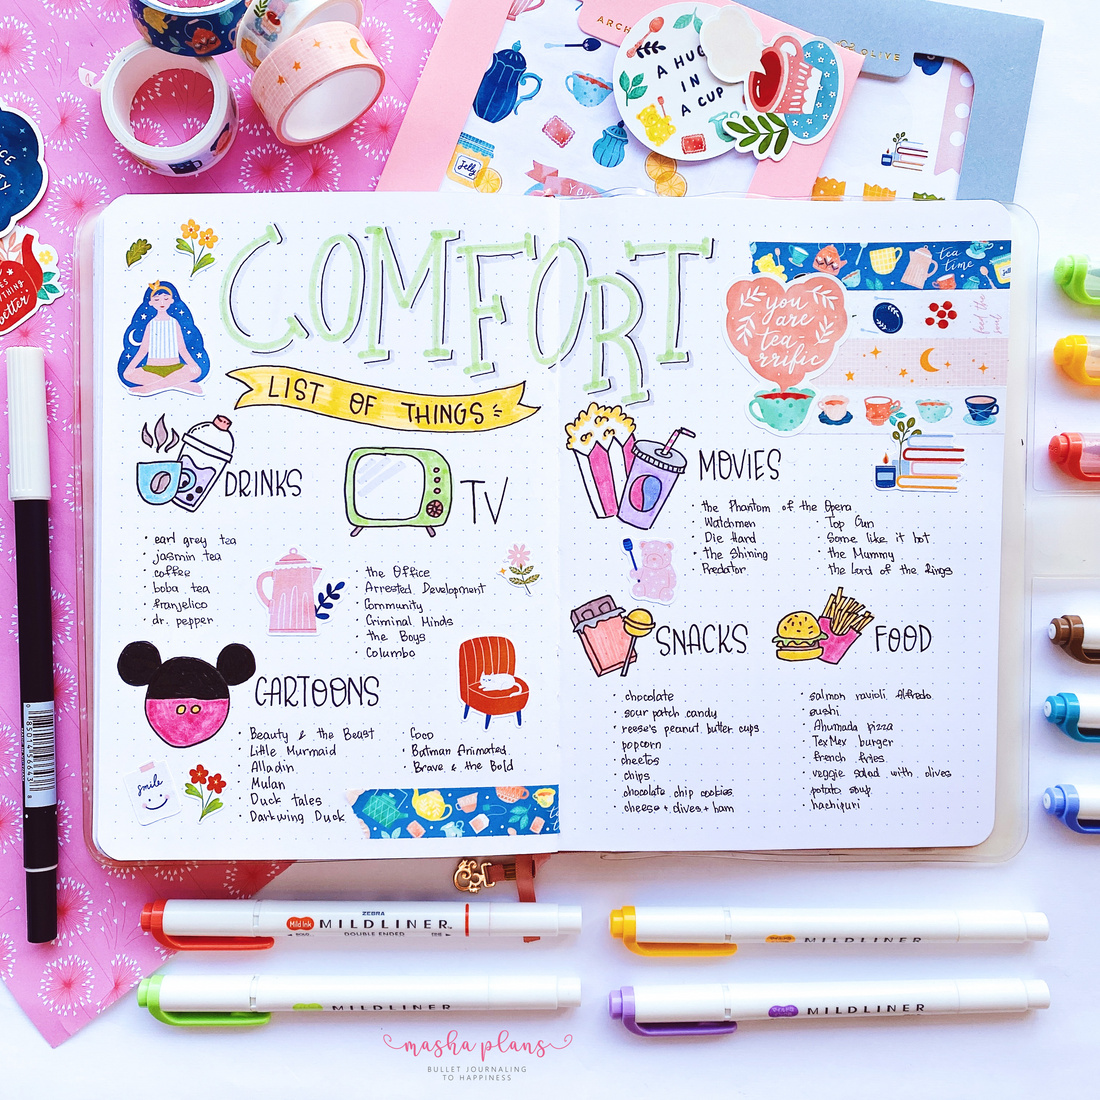 ARCH
OLIVE
A HUG
IN
A CUP
Jelly
COMFORT
LIST OF THINGS
tea
time
you
are
tea-
rrific
feed the
soul
DRINKS
earl grey tea
jasmin tea
coffee
boba tea
franjelico
dr. pepper
TV
the Office
Arrested Development
Community
Criminal Minds
the Boys
Columbo
CARTOONS
Beauty & the Beast
Little Murmaid
Alladin
Mulan
Duck tales
Darkwing Duck
Coco
Batman Animated
Brave & the Bold
smile
MOVIES
the Phantom of the Opera
Watchmen
Die Hard
the Shining
Predator
Top Gun
Some like it hot
the Mummy
the Lord of the Rings
SNACKS
chocolate
sour patch candy
reese's peanut butter cups
popcorn
cheetos
chips
chocolate chip cookies
cheese + olives + ham
FOOD
salmon ravioli Alfredo
sushi
Ahumada pizza
TexMex burger
french fries
veggie salad with olives
potato soup
hachipuri
better
ZEBRA
Mild Ink MILDLINER
DOUBLE ENDED
MILDLINER
MILDLINER
MILDLINER
masha plans
BULLET JOURNALING
TO HAPPINESS